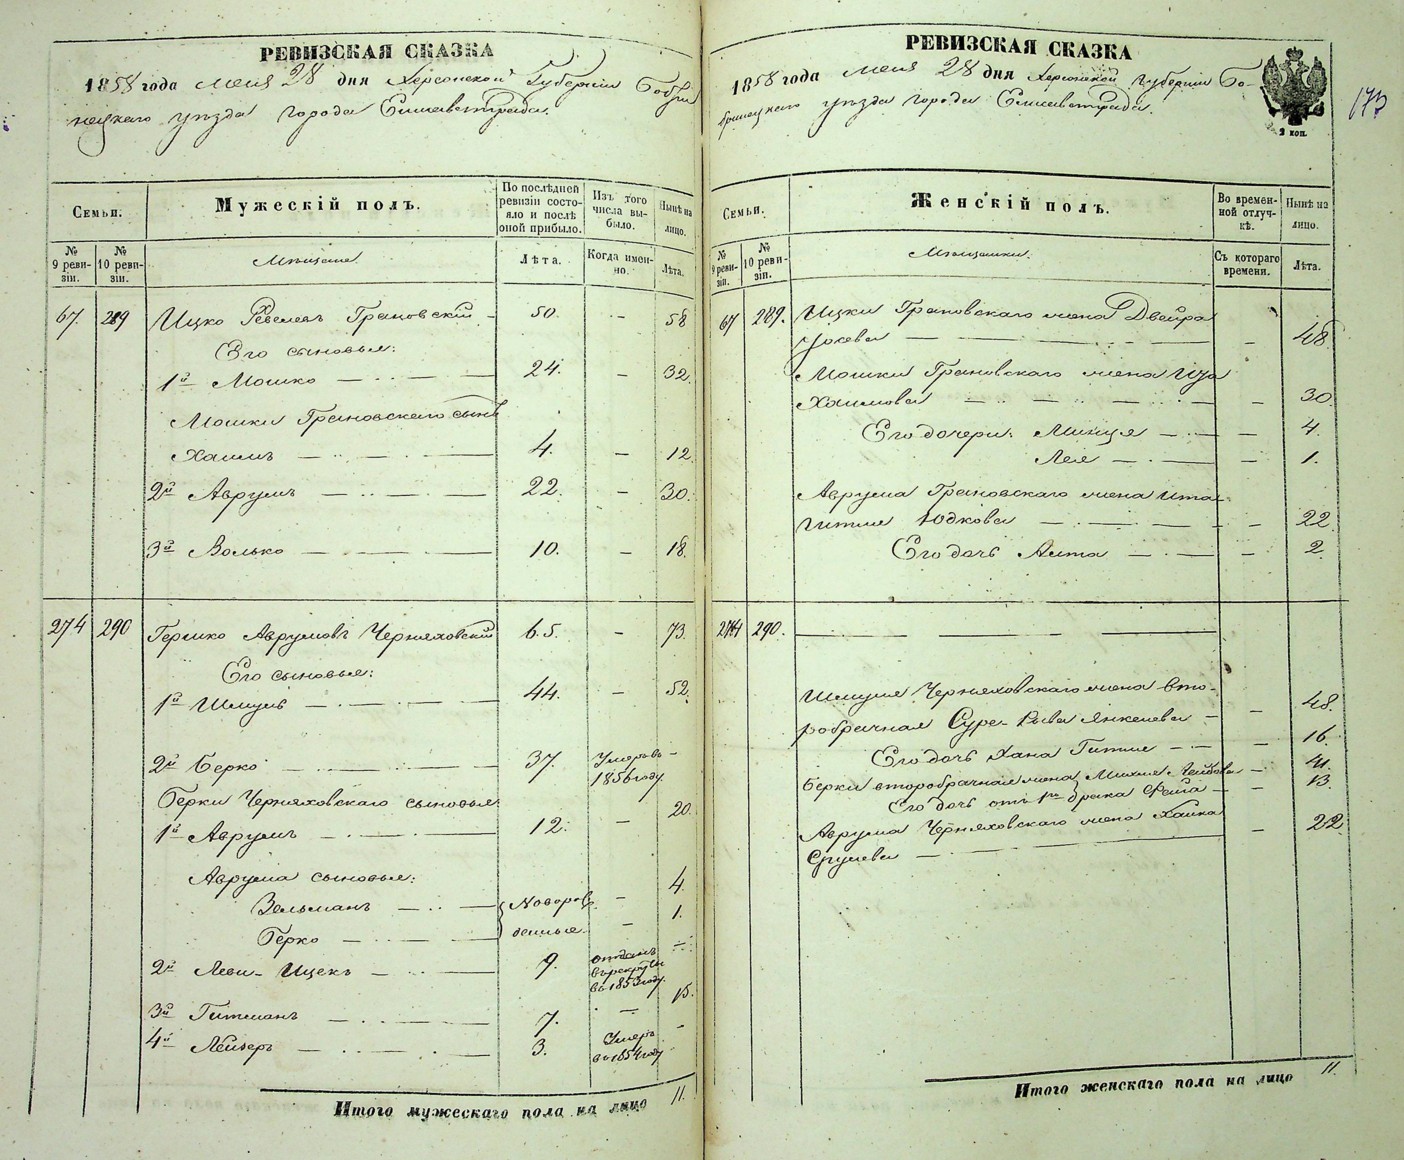 РЕВИЗСКАЯ СКАЗКА
1858 года мая 28 дня Херсонской Губернии Бобри
нецкаго уѣзда города Елисаветграда.
Семьи.
Мужескій полъ.
По послѣдней
ревизіи состо-
яло и послѣ
оной прибыло.
Изъ того
числа вы-
было.
Нынѣ на
лицо.
№
9 реви-
зіи.
№
10 реви-
зіи.
Мѣщане
Лѣта.
Когда имен-
но.
Лѣта.
67. 289 Ицко Рвелевъ Грановскій - 50. - 58
Его сыновья:
1й Мошко 24. - 32.
Мошки Грановскаго сынъ
Хаимъ 4. - 12.
2й Аврумъ 22. - 30.
3й Волько 10. - 18.
274 290 Гершко Аврумовъ Черняховскій 65. - 73.
Его сыновья:
1й Шмуль 44. - 52.
2й Берко 37. Умеръ въ -
1856 году.
Берки Черняховскаго сыновья
1й Аврумъ 12. - 20.
Аврума сыновья:
Зельманъ Новорож - 4.
Берко денные. - 1.
2й Леви-Ицекъ 9. отданъ
въ рекруты
въ 1853 году.
3й Гитманъ 7. - 15.
4й Лейзеръ 3. Умеръ -
въ 1854 году
Итого мужескаго пола на лицо 11.
РЕВИЗСКАЯ СКАЗКА
1858 года мая 28 дня Херсонской Губерніи Бо-
бринецкаго уѣзда города Елисаветграда.
2 коп.
173
Семьи.
Женскій полъ.
Во времен-
ной отлуч-
кѣ.
Нынѣ на
лицо.
№
9 реви-
зіи.
№
10 реви-
зіи.
Мѣщанки.
Съ котораго
времени.
Лѣта.
67 289. Ицки Грановскаго жена Двейра
- 48.
Мошки Грановскаго жена
Хаимова - 30.
Его дочери: Минця - 4.
Лея - 1.
Аврума Грановскаго жена Ита-
Гитля Юдкова - 22.
Его дочь Алта - 2.
274 290.
Шмуля Черняховскаго жена вто-
робрачная Сура-Рыва Янкелева - 48.
Его дочь Хана Гитля - 16.
Берки второбрачная жена Лейбова - 41.
Его дочь отъ 1го брака Фейга - 13.
Аврума Черняховскаго жена Хайка
Срулева - 22.
Итого женскаго пола на лицо 11.